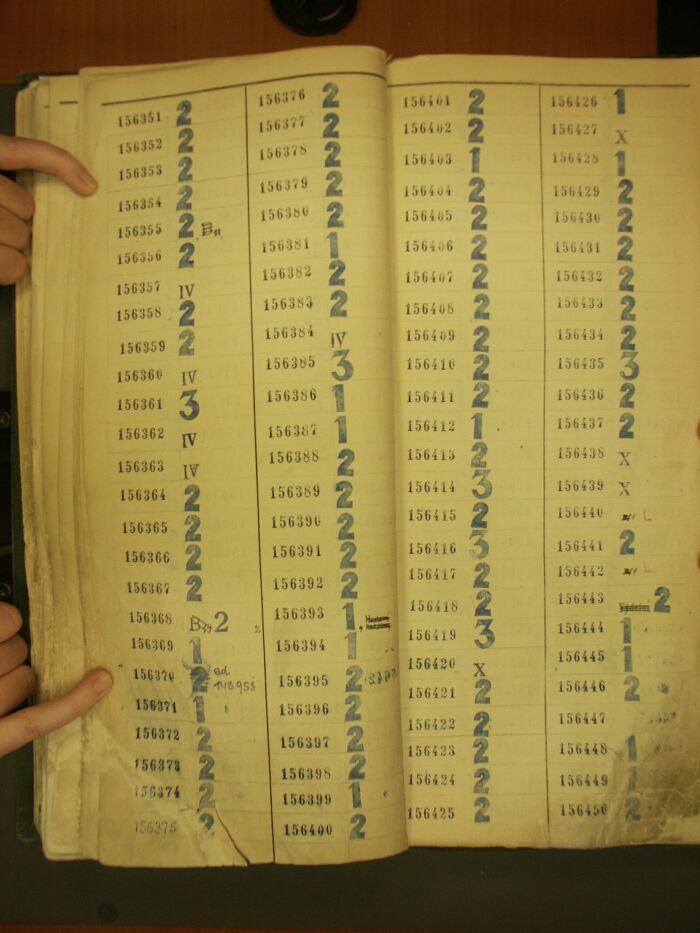 156351 2
156352 2
156353 2
156354 2
156355 2
156356 2
156357 IV
156358 2
156359 2
156360 IV
156361 3
156362 IV
156363 IV
156364 2
156365 2
156366 2
156367 2
156368 2
156369 1
156370 2
156371 1
156372 2
156373 2
156374 2
156375 2
156376 2
156377 2
156378 2
156379 2
156380 2
156381 1
156382 2
156383 2
156384 IV
156385 3
156386 1
156387 1
156388 2
156389 2
156390 2
156391 2
156392 2
156393 1
156394 1
156395 2
156396 2
156397 2
156398 2
156399 1
156400 2
156401 2
156402 2
156403 1
156404 2
156405 2
156406 2
156407 2
156408 2
156409 2
156410 2
156411 2
156412 1
156413 2
156414 3
156415 2
156416 3
156417 2
156418 2
156419 3
156420 X
156421 2
156422 2
156423 2
156424 2
156425 2
156426 1
156427 X
156428 1
156429 2
156430 2
156431 2
156432 2
156433 2
156434 2
156435 3
156436 2
156437 2
156438 X
156439 X
156440 L
156441 2
156442 L
156443 2
156444 1
156445 1
156446 2
156447
156448 1
156449 1
156450 2